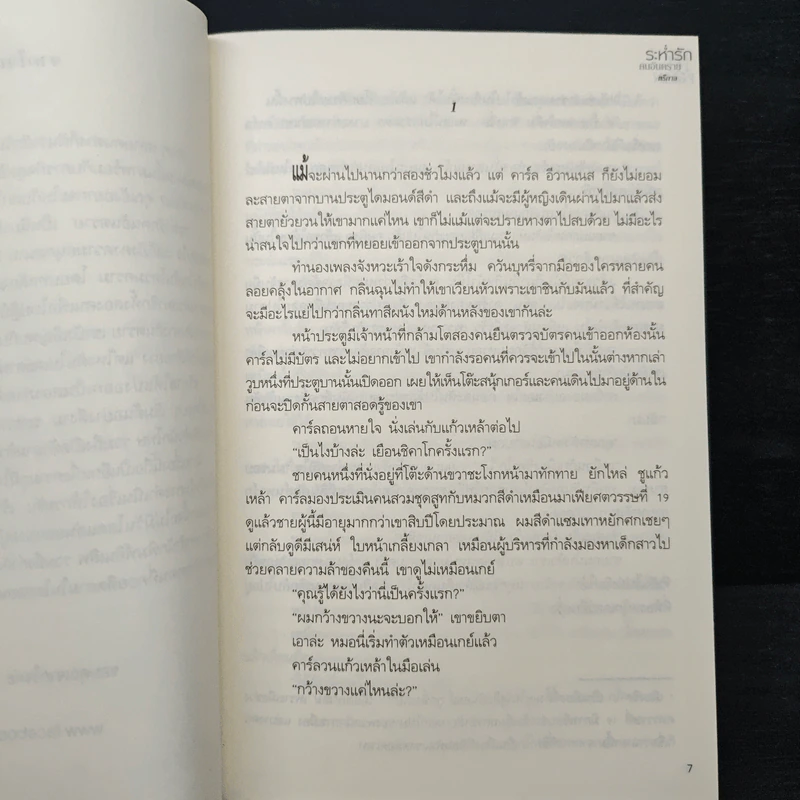 ระห่ำรัก
คนอันตราย
1
แม้จะผ่านไปนานกว่าสองชั่วโมงแล้ว แต่ คาร์ล อีวานเนส ก็ยังไม่ยอม
ละสายตาจากบานประตูไดมอนด์สีดำ และถึงแม้จะมีผู้หญิงเดินผ่านไปมาแล้วส่ง
สายตายั่วยวนให้เขามากแค่ไหน เขาก็ไม่แม้แต่จะปรายหางตาไปสบด้วย ไม่มีอะไร
น่าสนใจไปกว่าแขกที่ทยอยเข้าออกจากประตูบานนั้น
ทำนองเพลงจังหวะเร้าใจดังกระหึ่ม ควันบุหรี่จากมือของใครหลายคน
ลอยคลุ้งในอากาศ กลิ่นฉุนไม่ทำให้เขาเวียนหัวเพราะเขาชินกับมันแล้ว ที่สำคัญ
จะมีอะไรแย่ไปกว่ากลิ่นทาสีผนังใหม่ด้านหลังของเขากันล่ะ
หน้าประตูมีเจ้าหน้าที่กล้ามโตสองคนยืนตรวจบัตรคนเข้าออกห้องนั้น
คาร์ลไม่มีบัตร และไม่อยากเข้าไป เขากำลังรอคนที่ควรจะเข้าไปในนั้นต่างหากเล่า
วูบหนึ่งที่ประตูบานนั้นเปิดออก เผยให้เห็นโต๊ะสนุ้กเกอร์และคนเดินไปมาอยู่ด้านใน
ก่อนจะปิดกั้นสายตาสอดรู้ของเขา
คาร์ลถอนหายใจ นั่งเล่นกับแก้วเหล้าต่อไป
"เป็นไงบ้างล่ะ เยือนชิคาโกครั้งแรก?"
ชายคนหนึ่งที่นั่งอยู่ที่โต๊ะด้านขวาชะโงกหน้ามาทักทาย ยักไหล่ ชูแก้ว
เหล้า คาร์ลมองประเมินคนสวมชุดสูทกับหมวกสีดำเหมือนมาเฟียศตวรรษที่ 19
ดูแล้วชายผู้นี้มีอายุมากกว่าเขาสิบปีโดยประมาณ ผมสีดำแซมเทาหยักศกเซยๆ
แต่กลับดูดีมีเสน่ห์ ใบหน้าเกลี้ยงเกลา เหมือนผู้บริหารที่กำลังมองหาเด็กสาวไป
ช่วยคลายความล้าของคืนนี้ เขาดูไม่เหมือนเกย์
"คุณรู้ได้ยังไงว่านี่เป็นครั้งแรก?"
"ผมกว้างขวางนะจะบอกให้" เขาขยิบตา
เอาล่ะ หมอนี่เริ่มทำตัวเหมือนเกย์แล้ว
คาร์ลวนแก้วเหล้าในมือเล่น
"กว้างขวางแค่ไหนล่ะ?"
7